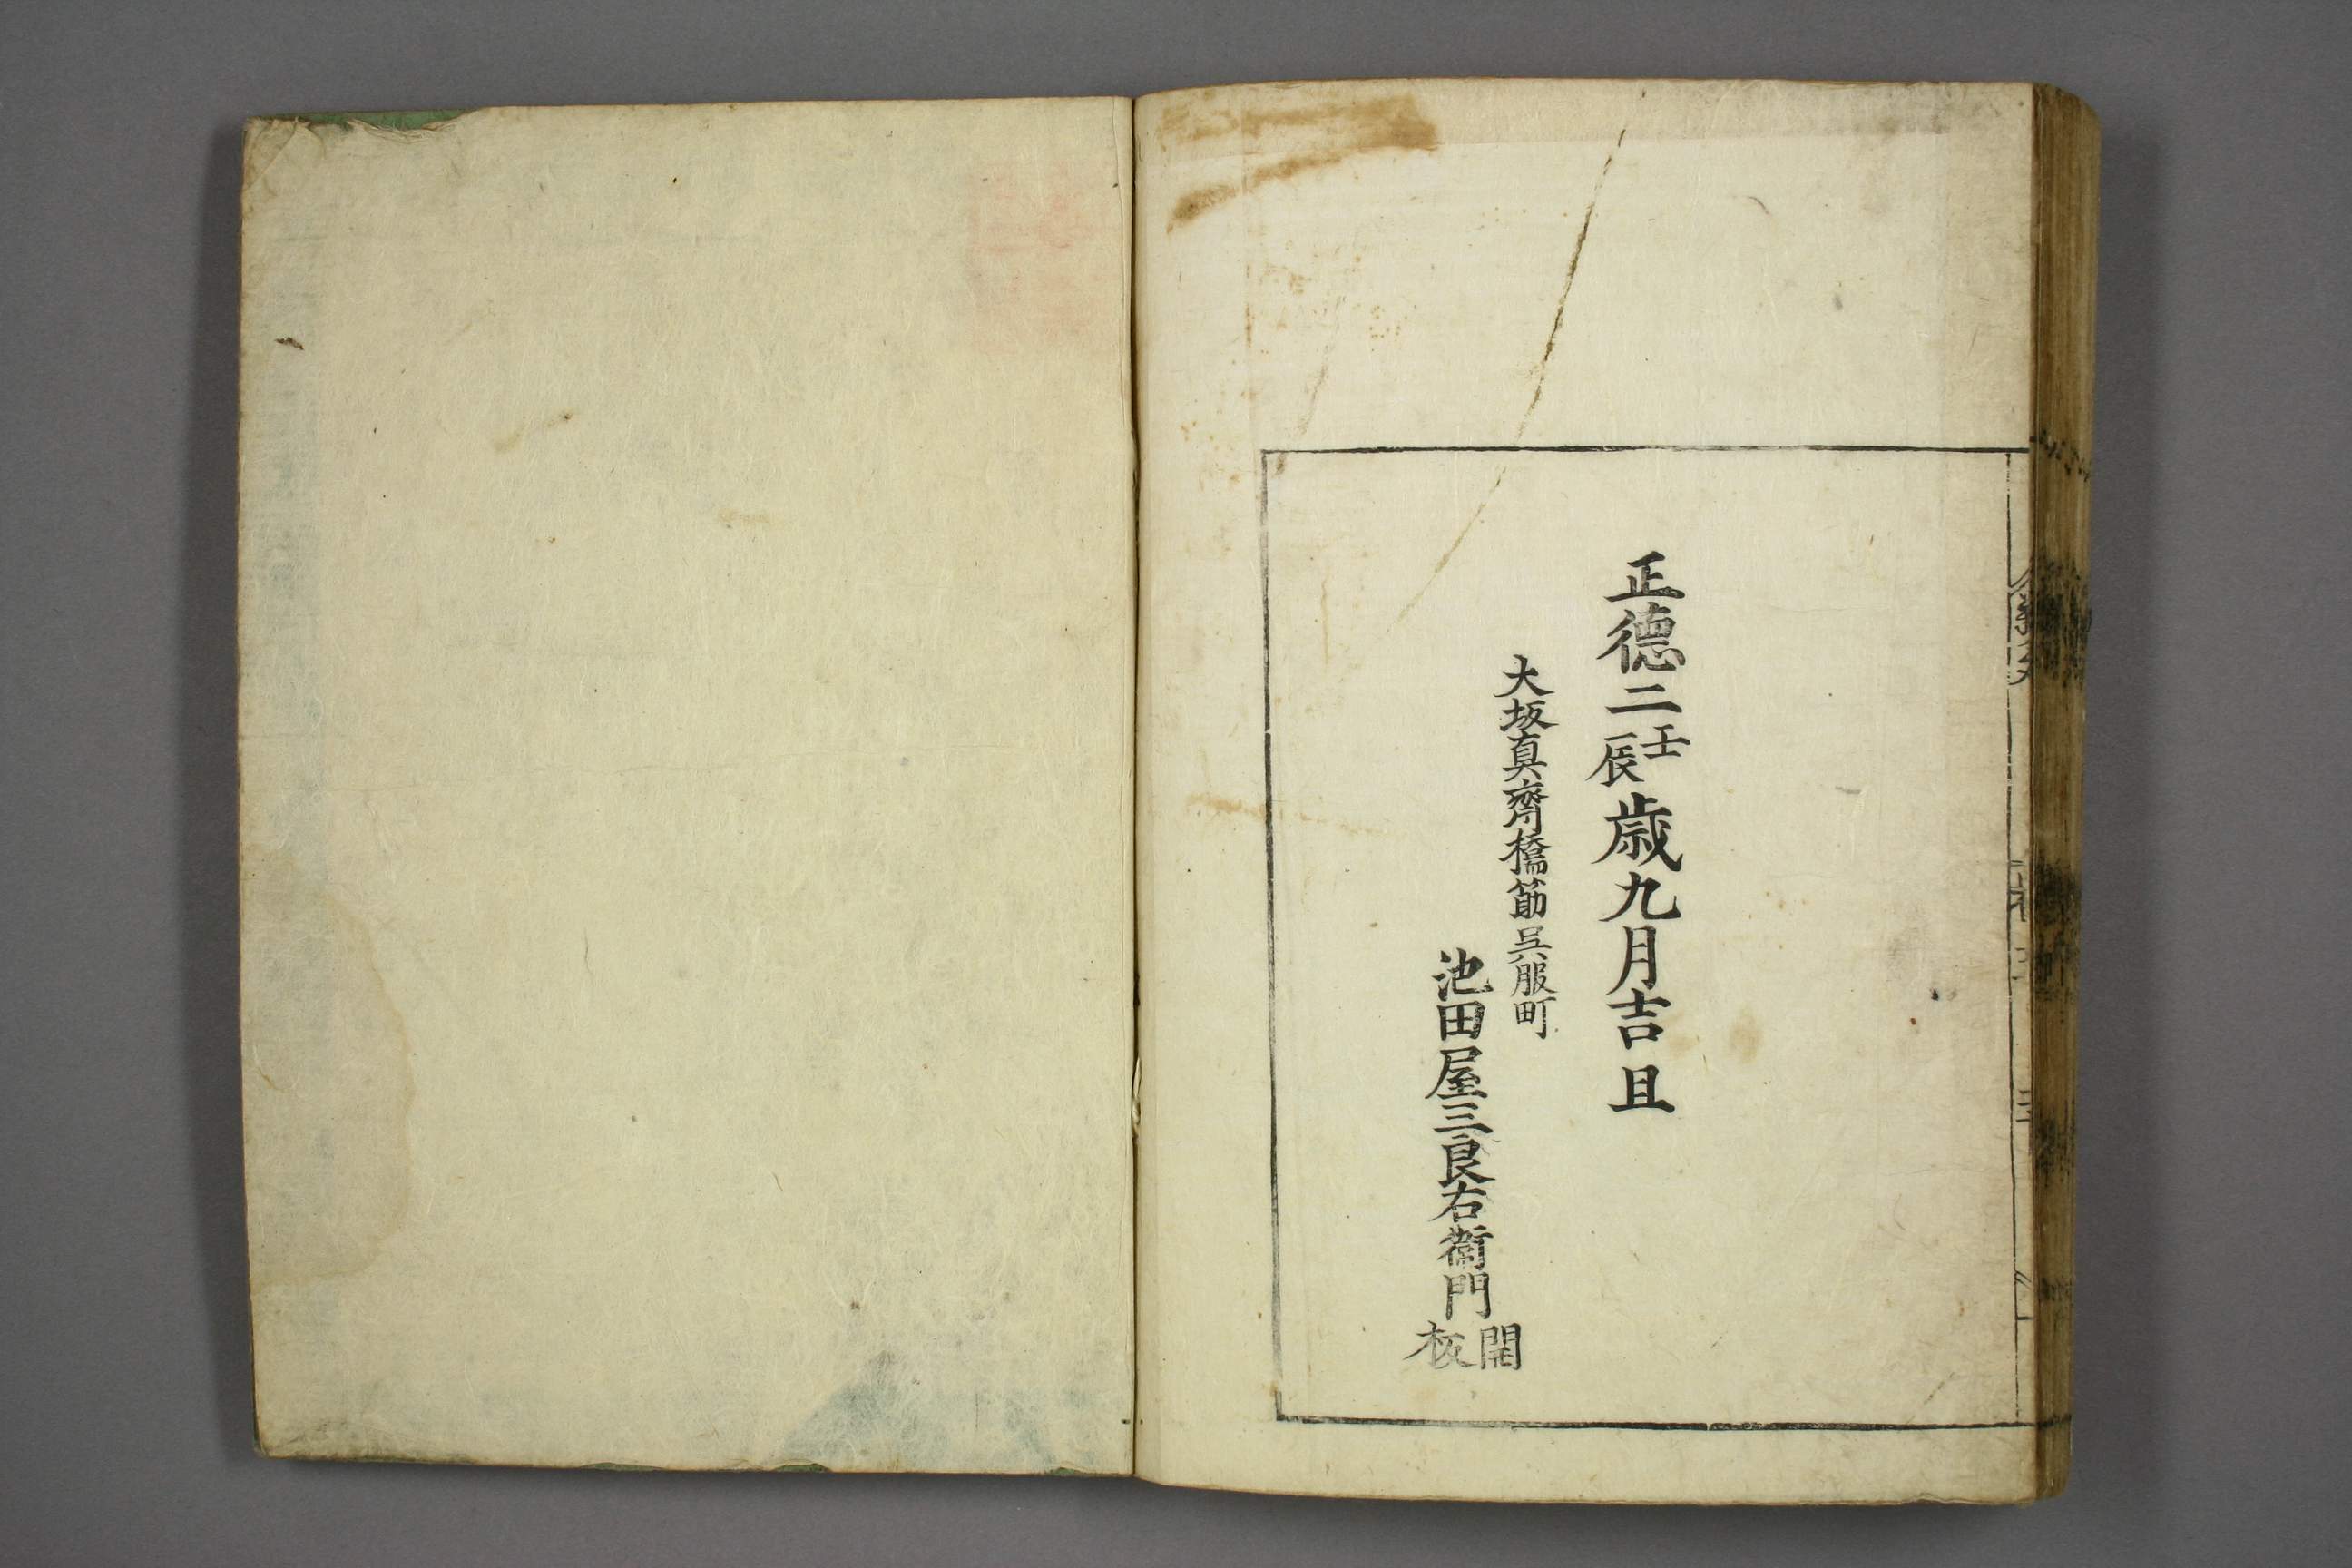 正德二壬辰歳九月吉旦
大坂真齋橋筋呉服町
池田屋三良右衞門開板